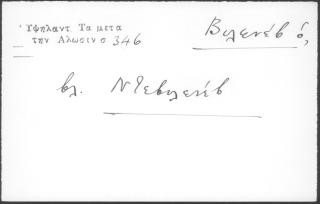 Ὑψηλαντ. Τα μετα
την Αλωσιν σ 346
Βιλενέβ ὁ,
βλ. Ντεβιλενέβ